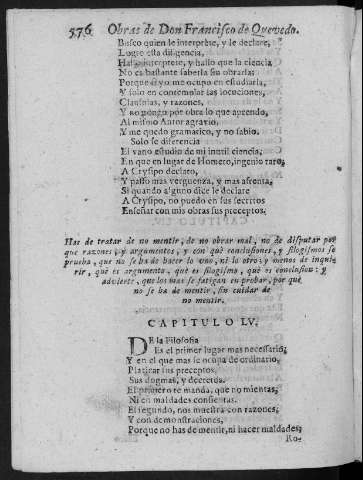 576 Obras de Don Francisco de Quevedo.
Busco quien le interprete, y le declare,
Logre esta diligencia,
Hallo interprete, y hallo que la ciencia
No es bastante saberla sin obrarla:
Porque si yo me ocupo en estudiarla,
Y solo en contemplar las locuciones,
Clausulas, y razones,
Y no pongo por obra lo que aprendo,
Al mismo Autor agravio,
Y me quedo gramatico, y no sabio.
Solo se diferencia
El vano estudio de mi inutil ciencia,
En que en lugar de Homero, ingenio raro,
A Crysipo declaro,
Y passo mas verguenza, y mas afrenta,
Si quando alguno dice le declare
A Crysipo, no puedo en sus secretos
Enseñar con mis obras sus preceptos.
Has de tratar de no mentir, de no obrar mal, no de disputar por
que razones, y argumentos, y con què conclusiones, y silogismos se
prueba, que no se ha de hacer lo uno, ni lo otro; y menos de inqui-
rir, què es argumento, què es silogismo, què es conclusion: y
advierte, que los mas se fatigan en probar, por què
no se ha de mentir, sin cuidar de
no mentir.
CAPITULO LV.
DE la Filosofia
Es el primer lugar mas necessario,
Y en el que mas se ocupa de ordinario,
Platicar sus preceptos,
Sus dogmas, y decretos.
El primero te manda, que no mientas,
Ni en maldades consientas.
El segundo, nos muestra con razones,
Y con demonstraciones,
Porque no has de mentir, ni hacer maldades;
Ro-